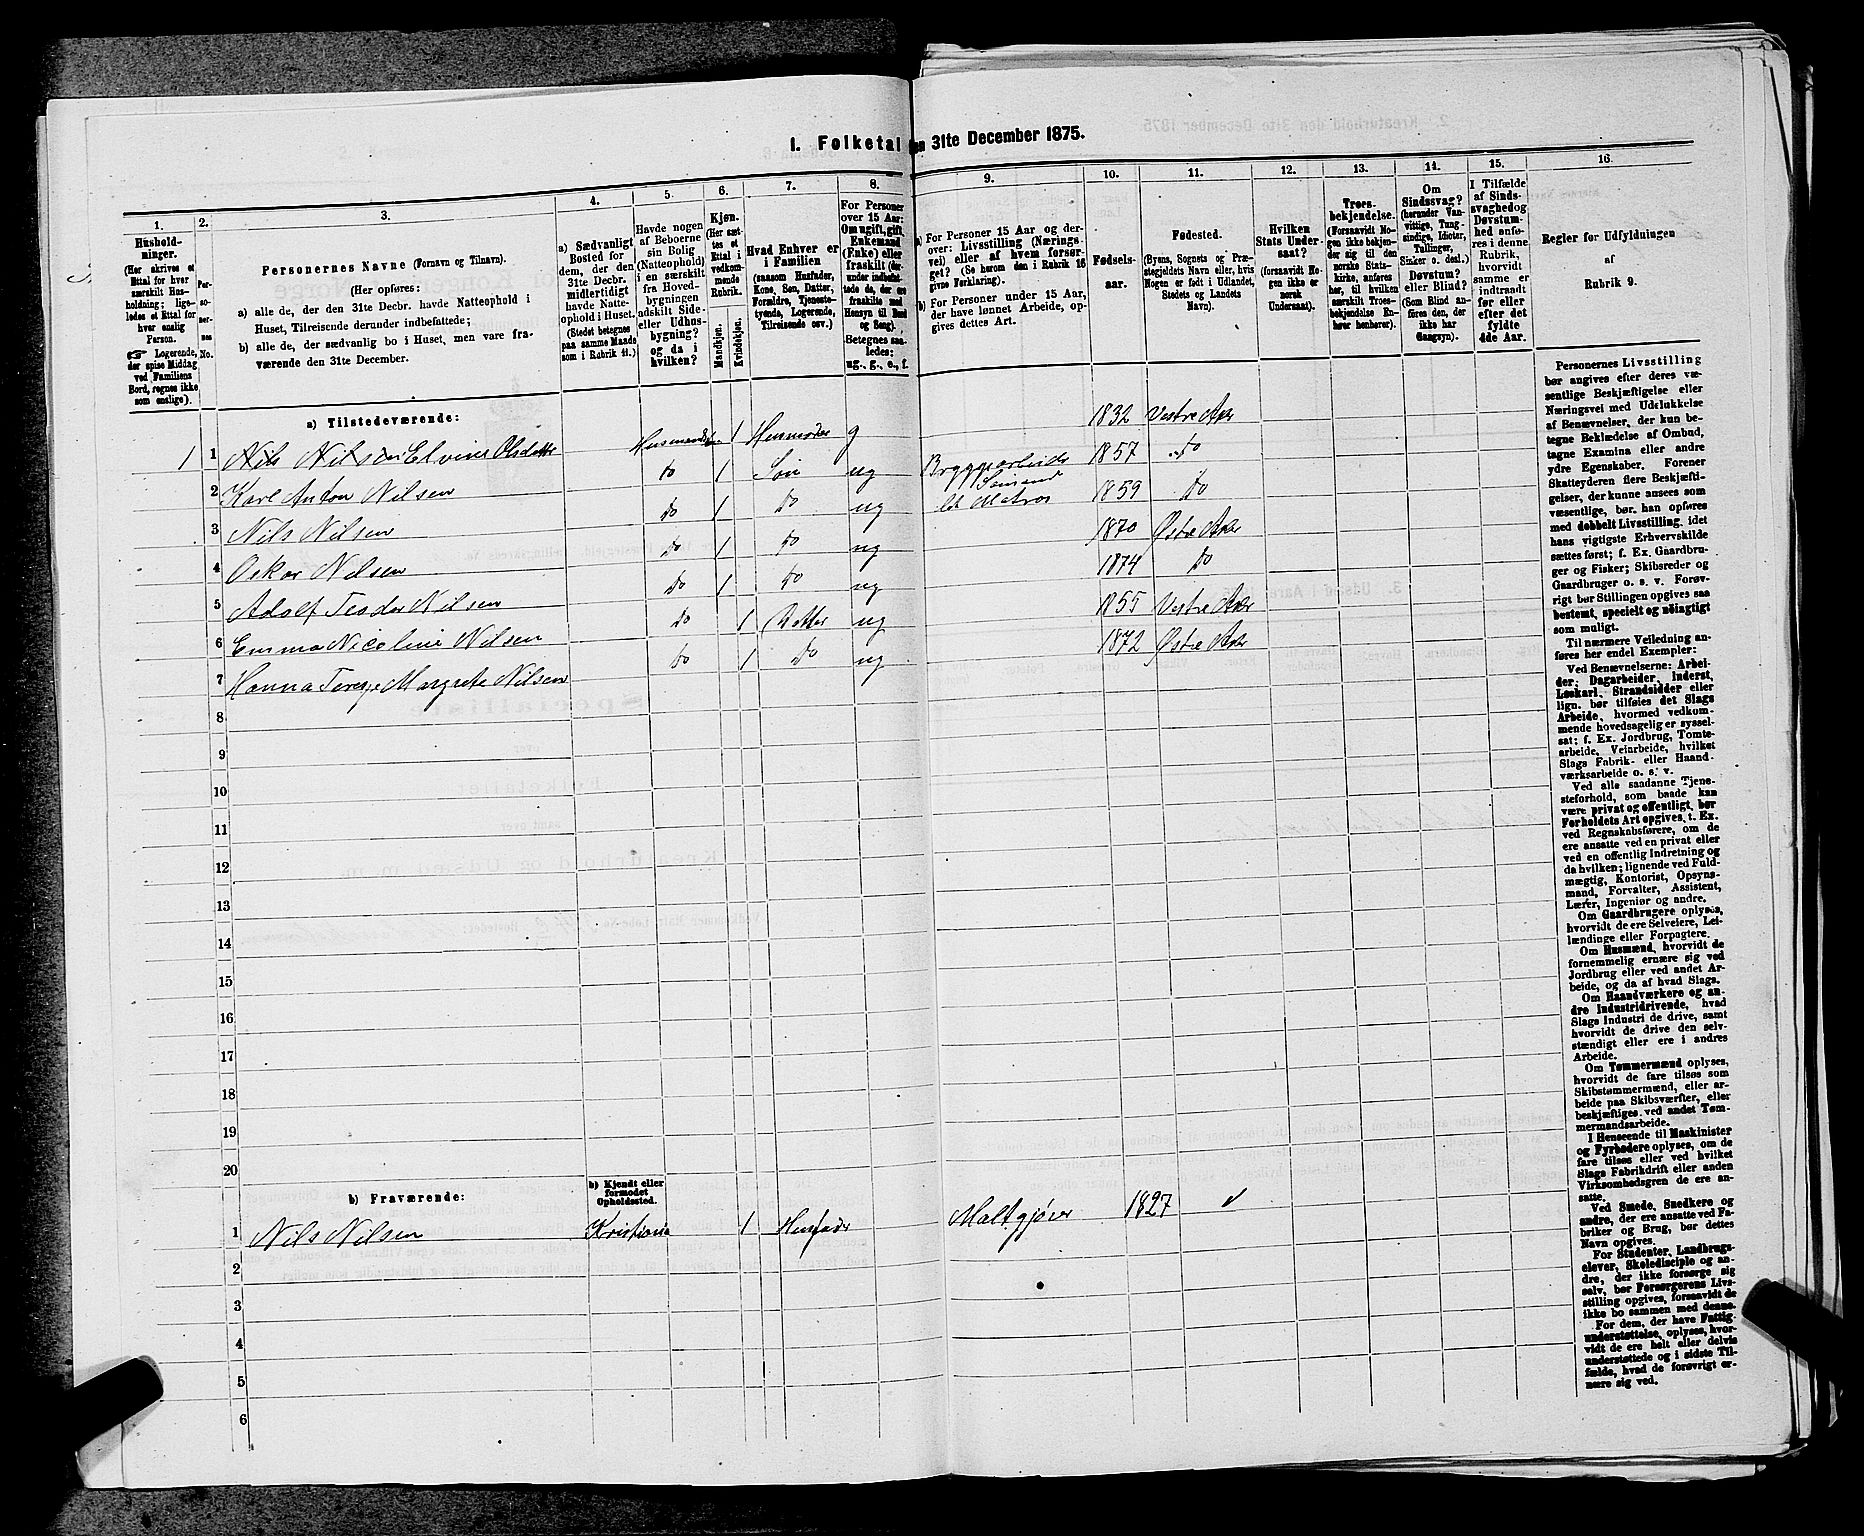 1. Folketal den 31te December 1875.
1. 2. 3. 4. 5. 6. 7. 8. 9. 10. 11. 12. 13. 14. 15. 16.
Hushold-
ninger.
(Her skrives et
Ettal for hver
særskilt Hus-
holdning; lige-
ledes et Ettal for
hver enslig
Person.
☞ Logerende,
der spise Middag
ved Familiens
Bord, regnes ikke
som enslige).
Per-
so-
ner-
nes
No.
Personernes Navne (Fornavn og Tilnavn).
(Her opføres:
a) alle de, der den 31te Decbr. havde Natteophold i
Huset, Tilreisende derunder indbefattede;
b) alle de, der sædvanlig bo i Huset, men vare fra-
værende den 31te December.
a) Sædvanligt
Bosted for
dem, der den
31te Decbr.
midlertidigt
havde Natte-
ophold i Huset.
(Stedet betegnes
paa samme Maade
som i Rubrik 11.)
Havde nogen
af Beboerne
sin Bolig
(Natteophold)
i en særskilt
fra Hoved-
bygningen
adskilt Side-
eller Udhus-
bygning?
og da i
hvilken?
Kjøn.
(Her sæt-
tes et
Ettal i
vedkom-
mende
Rubrik.
Mandkjøn.
Kvindekjøn.
Hvad Enhver er
i Familien
(saasom Husfader,
Kone, Søn, Datter,
Forældre, Tjeneste-
tyende, Logerende,
Tilreisende osv.)
For Personer
over 15 Aar:
Om ugift, gift,
Enkemand
(Enke) eller
fraskilt
Betegnes saa-
ledes:
ug., g., e., f.
a) For Personer 15 Aar og der-
over: Livsstilling (Nærings-
vei) eller af hvem forsør-
get? (Se herom den i Rubrik 16
givne Forklaring).
b) For Personer under 15 Aar,
der have lønnet Arbeide, op-
gives dettes Art.
Fødsels-
aar.
Fødested.
(Byens, Sognets og Præ-
stegjeldets Navn eller, hvis
Nogen er født i Udlandet,
Stedets og Landets
Navn).
Hvilken
Stats Under-
saat?
(forsaavidt No-
gen ikke er
norsk
Undersaat).
Troes-
bekjendelse.
(Forsaavidt No-
gen ikke bekjen-
der sig til den
norske Stats-
kirke, anføres
her, til hvilken
særskilt Troes-
bekjendelse En-
hver henhører).
Om
Sindssvag?
(herunder Van-
vittige, Tung-
sindige, Idioter,
Tullinger,
Sinker o. desl.)
Døvstum?
eller Blind?
(Som Blind an-
føres den, der
ikke har
Gangsyn).
I Tilfælde
af Sinds-
svaghed og
Døvstum-
hed anfø-
res i denne
Rubrik,
hvorvidt
samme er
indtraadt
før eller
efter det
fyldte
4de Aar.
Regler for Udfyldningen
af
Rubrik 9.
a) Tilstedeværende:
1 1 Nils Nilsen Elvine Olsdatter Husmandsb. 1 Husmoder g 1832 Vestre Aker
2 Karl Anton Nilsen do 1 Søn ug Bryggearbeider 1857 do
3 Nils Nilsen do 1 do ug Sømand Matros 1859 do
4 Oskar Nilsen do 1 do ug 1870 Østre Aker
5 Adolf Teodor Nilsen do 1 do ug 1874 do
6 Emma Nicoline Nilsen do 1 Datter ug 1855 Vestre Aker
7 Hanna Terese Margrete Nilsen do 1 do ug 1872 Østre Aker
8
9
10
11
12
13
14
15
16
17
18
19
20
b) Fraværende:
b) Kjendt eller
formodet
Opholdssted.
1 Nils Nilsen Kristiania 1 Husfader Maltgjører 1827
2
3
4
5
6
Personernes Livsstilling
bør angives efter deres væ-
sentlige Beskjæftigelse eller
Næringsvei med Udelukkelse
af Benævnelser, der kun be-
tegne Beklædelse af Ombud,
tagne Examina eller andre
ydre Egenskaber. Forener
Skatteyderen flere Beskjæfti-
gelser, der kunne ansees som
væsentlige, bør han opføres
med dobbelt Livsstilling, idet
hans vigtigste Erhvervskilde
sættes først; f. Ex. Gaardbru-
ger og Fisker; Skibsreder og
Gaardbruger o. s. v. Forøv-
rigt bør Stillingen opgives saa
bestemt, specielt og nøiagtigt
som muligt.
Til nærmere Veiledning an-
føres her endel Exempler:
Ved Benævnelserne: Arbei-
der, Dagarbeider, Inderst,
Løskarl, Strandsidder eller
lign. bør tilføies det Slags
Arbeide, hvormed vedkom-
mende hovedsagelig er syssel-
sat; f. Ex. Jordbrug, Tomte-
arbeide, Veiarbeide, hvilket
Slags Fabrik- eller Haand-
værksarbeide o. s. v.
Ved alle saadanne Tjene-
steforhold, som baade kan
være privat og offentligt, bør
Forholdets Art opgives, t. Ex.
ved Regnskabsførere, om de
ere ansatte ved en privat eller
ved en offentlig Indretning og
da hvilken; lignende ved Fuld-
mægtig, Kontorist, Opsyns-
mand, Forvalter, Assistent,
Lærer, Ingeniør og andre.
Om Gaardbrugere oplyses,
hvorvidt de ere Selveiere, Lei-
lændinge eller Forpagtere.
Om Husmænd, hvorvidt de
fornemmelig ernære sig ved
Jordbrug eller ved andet Ar-
beide, og da af hvad Slags.
Om Haandværkere og an-
dre Industridrivende, hvad
Slags Industri de drive, samt
hvorvidt de drive den selv-
stændigt eller ere i andres
Arbeide.
Om Tømmermænd oplyses,
hvorvidt de fare tilsøs som
Skibstømmermænd, eller ar-
beide paa Skibsværfter, eller
beskjæftiges ved andet Tøm-
mermandsarbeide.
I Henseende til Maskinister
og Fyrbødere oplyses, om de
fare tilsøs eller ved hvilket
Slags Fabrikdrift eller anden
Virksomhedsgren de ere an-
satte.
Ved Smede, Snedkere og
andre, der ere ansatte ved Fa-
briker og Brug, bør dettes
Navn opgives.
For Studenter, Landbrugs-
elever, Skoledisciple og an-
dre, der ikke forsørge sig
selv, bør Forsørgerens Livs-
stilling opgives, forsaavidt de
ikke bo sammen med denne.
For dem, der have Fattig-
understøttelse, oplyses, hvor-
vidt de ere helt eller delvis
understøttede og i sidste Til-
fælde, hvad de forøvrigt er-
nære sig ved.